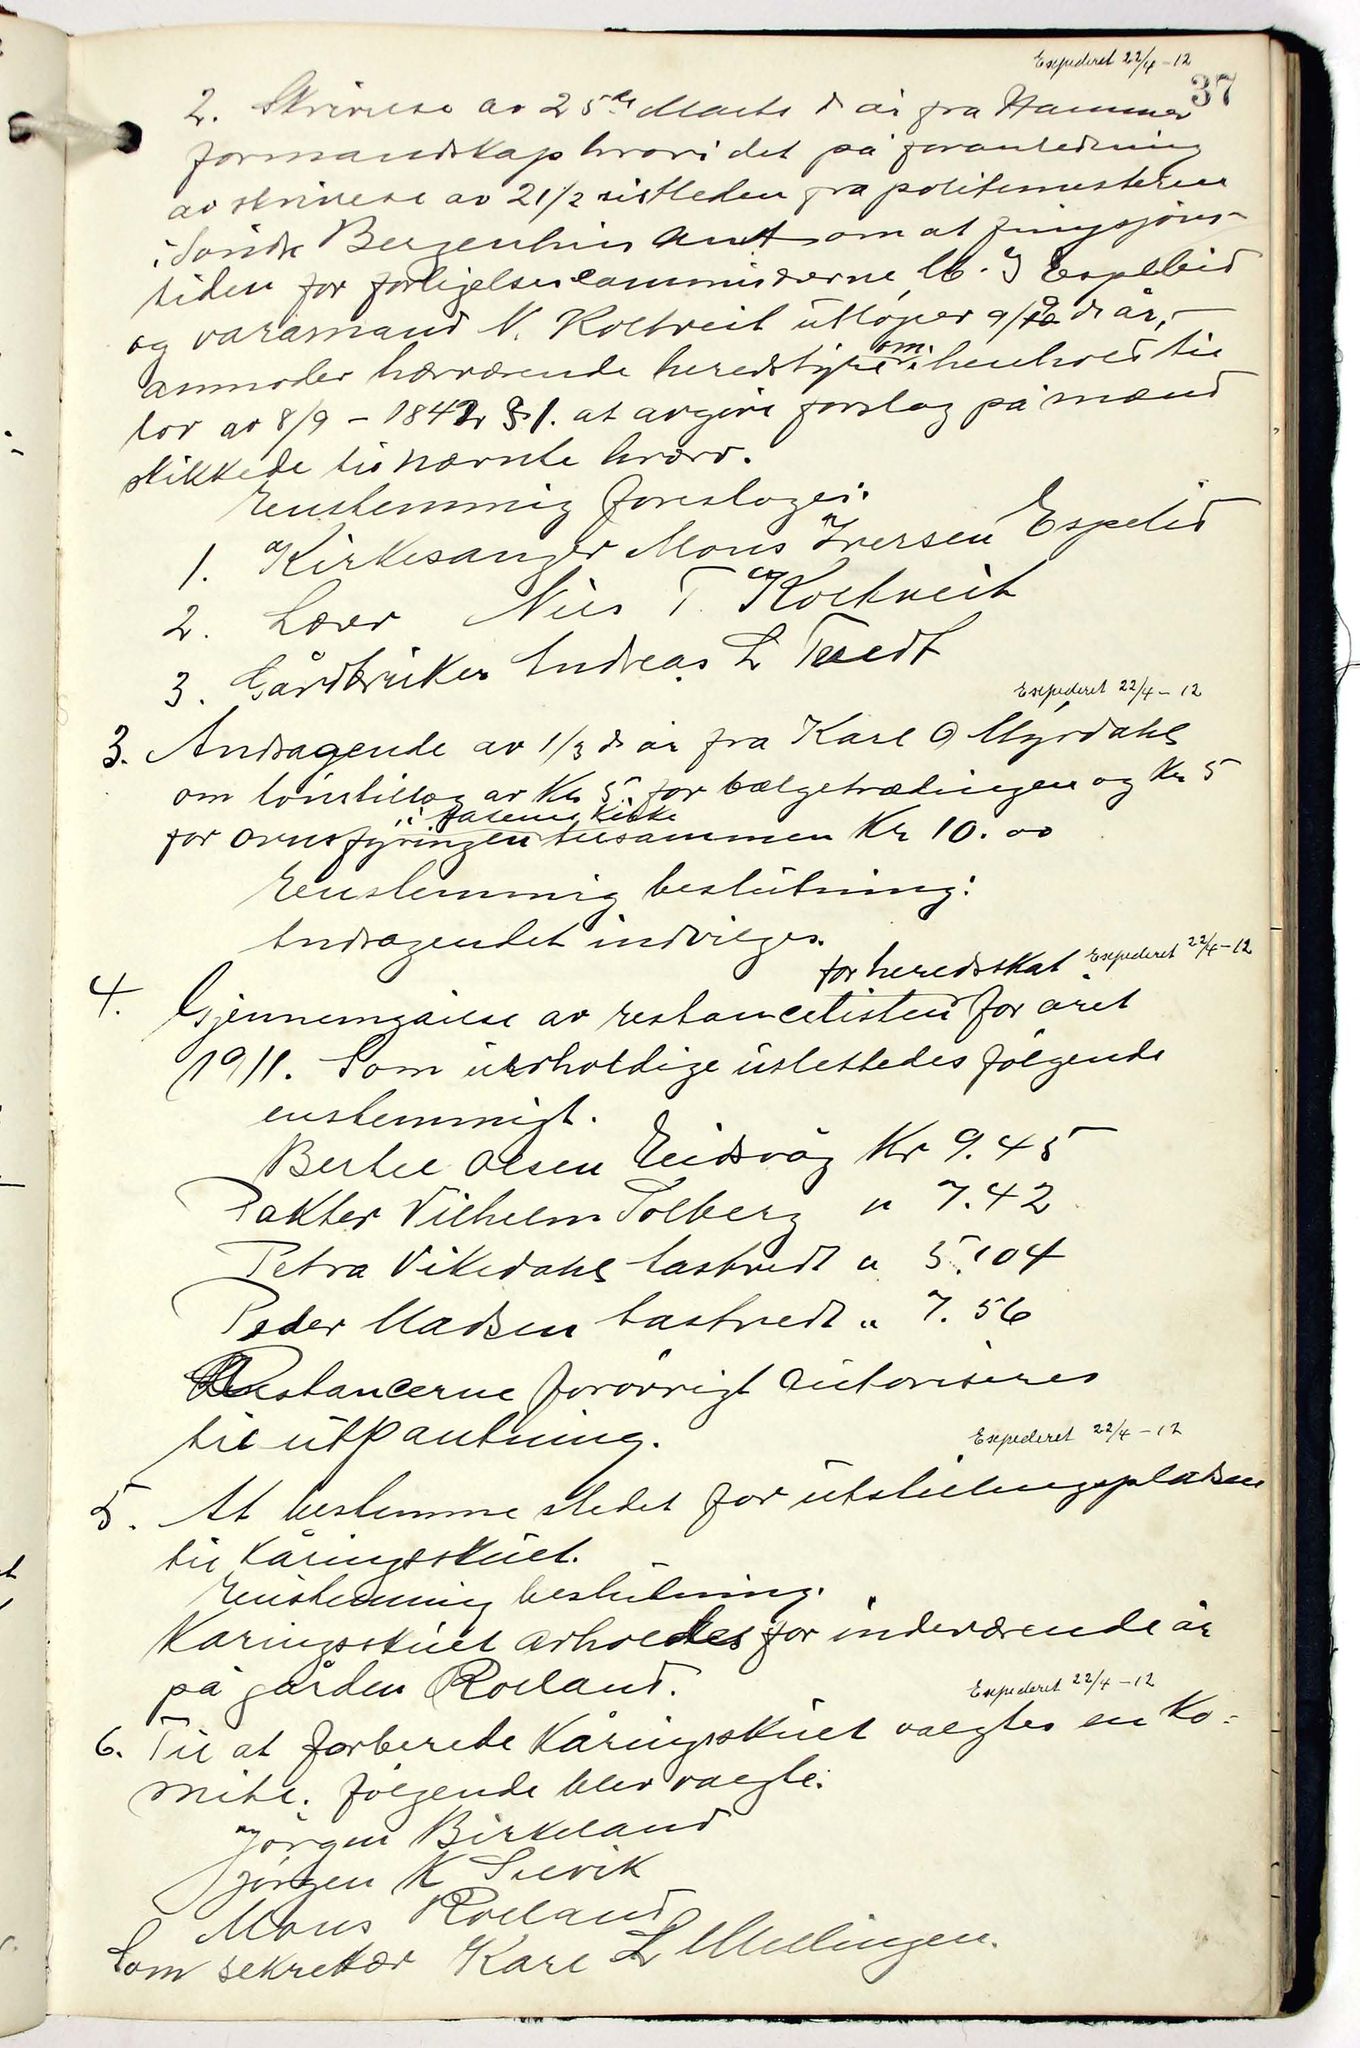 Expederet 22/4 - 12
37
2. Skrivelse av 25de Marts d år fra Hammer
formandskap hvori det på foranledning
av skrivelse av 21/2 sistleden fra politimesteren
i Söndre Bergenhus Amt om at fungsjons-
tiden for forligelseskommisærerne, M. I Espelid
og varamand N. Koltveit utlöper 9/9 d år, -
anmoder hærværende heredstyre om i henhold til
lov av 8/9 - 1842 § 1. at avgive forslag på mænd
skikkede til nævnte hverv.
Enstemmig foresloges:
1. Kirkesanger Mons Iversen Espelid
2. Lærer Nils T. Koltveit
3. Gårdbruker Andreas L Tvedt
Expederet 22/4 - 12
3. Andragende av 1/3 d år fra Karl O Myrdahl
om lönstillæg av Kr 5 for bælgetrædingen og Kr 5
for ovnsfyringen i Salhus Kirke tilsammen Kr 10.00
Enstemmig beslutning:
Andragendet indvilges.
for heredsskat Expederet 22/4 - 12
4. Gjennemgåelse av restancelisten for året
1911. Som uerholdige utslettedes fölgende
enstemmigt.
Bertel Olsen Eidsvåg Kr 9.45
Pakter Vilhelm Solberg " 7.42
Petra Vikedahl Tastvedt " 5.04
Peder Madsen Tastvedt " 7.56
Restancerne forövrigt autoriseres
til utpantning.
Expederet 22/4 - 12
5. At bestemme stedet for utstillingspladsen
til Kåringsskuet.
Enstemmig beslutning.
Kåringsskuet avholdes for indeværende år
på gården Rolland.
Expederet 22/4 - 12
6. Til at forberede Kåringsskuet valgtes en Ko-
mite. fölgende blev valgte:
Jörgen Birkeland
Jörgen K Selvik
Mons Rolland
Som sekretær Karl L Mellingen.